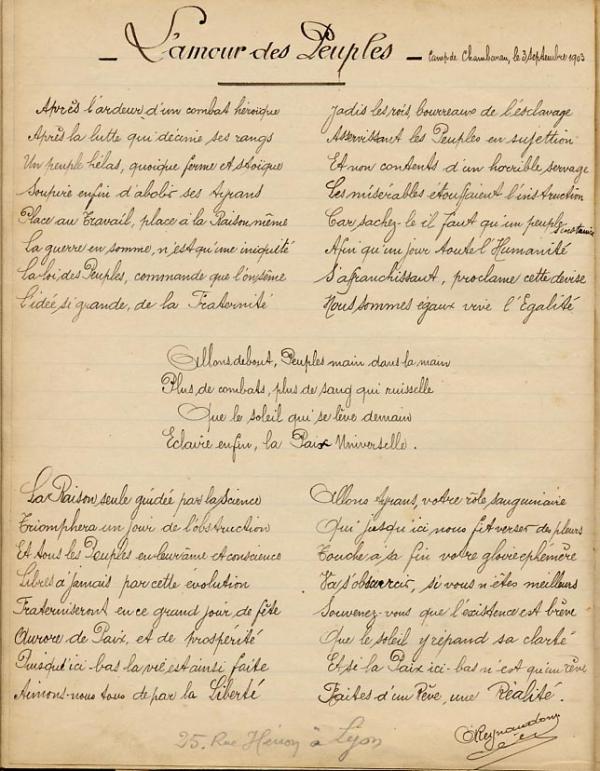 — L'amour des Peuples —
Camp de Chambaran, le 3 Septembre 1903
Après l'ardeur d'un combat héroïque
Après la lutte qui décime ses rangs
Un peuple hélas, quoique ferme et stoïque
Soupire enfin d'abolir ses tyrans
Place au Travail, place à la Raison même
La guerre en somme, n'est qu'une iniquité
La loi des Peuples, commande que l'on sème
L'idée si grande, de la Fraternité
Jadis les rois, bourreaux de l'ésclavage
Asservissant les Peuples en sujettion
Et non contents d'un horrible servage
Les misérables étouffaient l'instruction
Car sachez-le il faut qu'un peuple s'instruise
Afin qu'un jour toute l'Humanité
S'afranchissant, proclame cette devise
Nous sommes égaux vive l'Egalité
Allons debout, Peuples main dans la main
Plus de combats, plus de sang qui ruisselle
Que le soleil qui se lève demain
Eclaire enfin, la Paix Universelle.
La Raison seule guidée par la science
Triomphera un jour de l'obstruction
Et tous les Peuples en leur âme et conscience
Libres à jamais par cette evolution
Fraterniseront en ce grand jour de fête
Aurore de Paix, et de prospérité
Puisqu'ici-bas la vie, est ainsi faite
Aimons-nous tous de par la Liberté
Allons tyrans, votre rôle sanguinaire
Qui jusqu'ici nous fit verser des pleurs
Touche à sa fin votre gloire ephémère
Va s'obscurcir, si vous n'êtes meilleurs
Souvenez-vous que l'éxistence est brève
Que le soleil y répand sa clarté
Et si la Paix ici-bas n'est qu'un rêve
Faites d'un Rêve, une Réalité.
25, Rue Hénon à Lyon